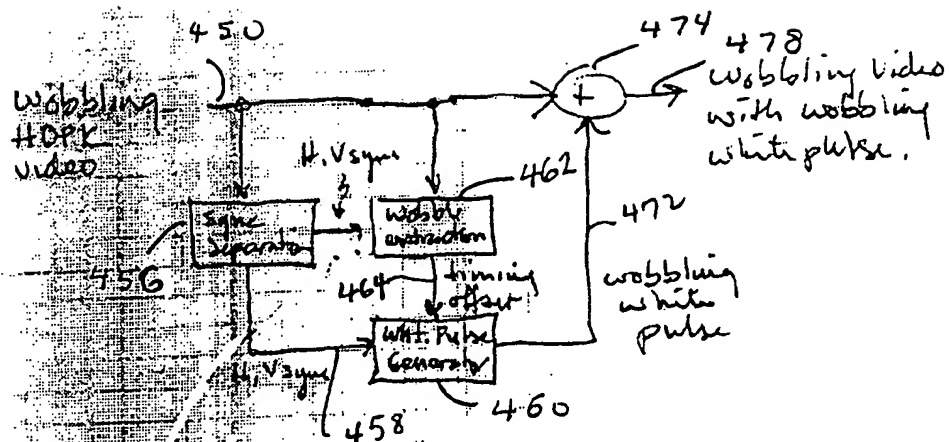 450
474
478
wobbling
HOPK
video
+
wobbling video
with wobbling
white pulse.
H, Vsync
462
Sync
Separator
wobble
extraction
472
456
464
timing
offset
wobbling
white
pulse
Wht. Pulse
Generator
H, Vsync
460
458